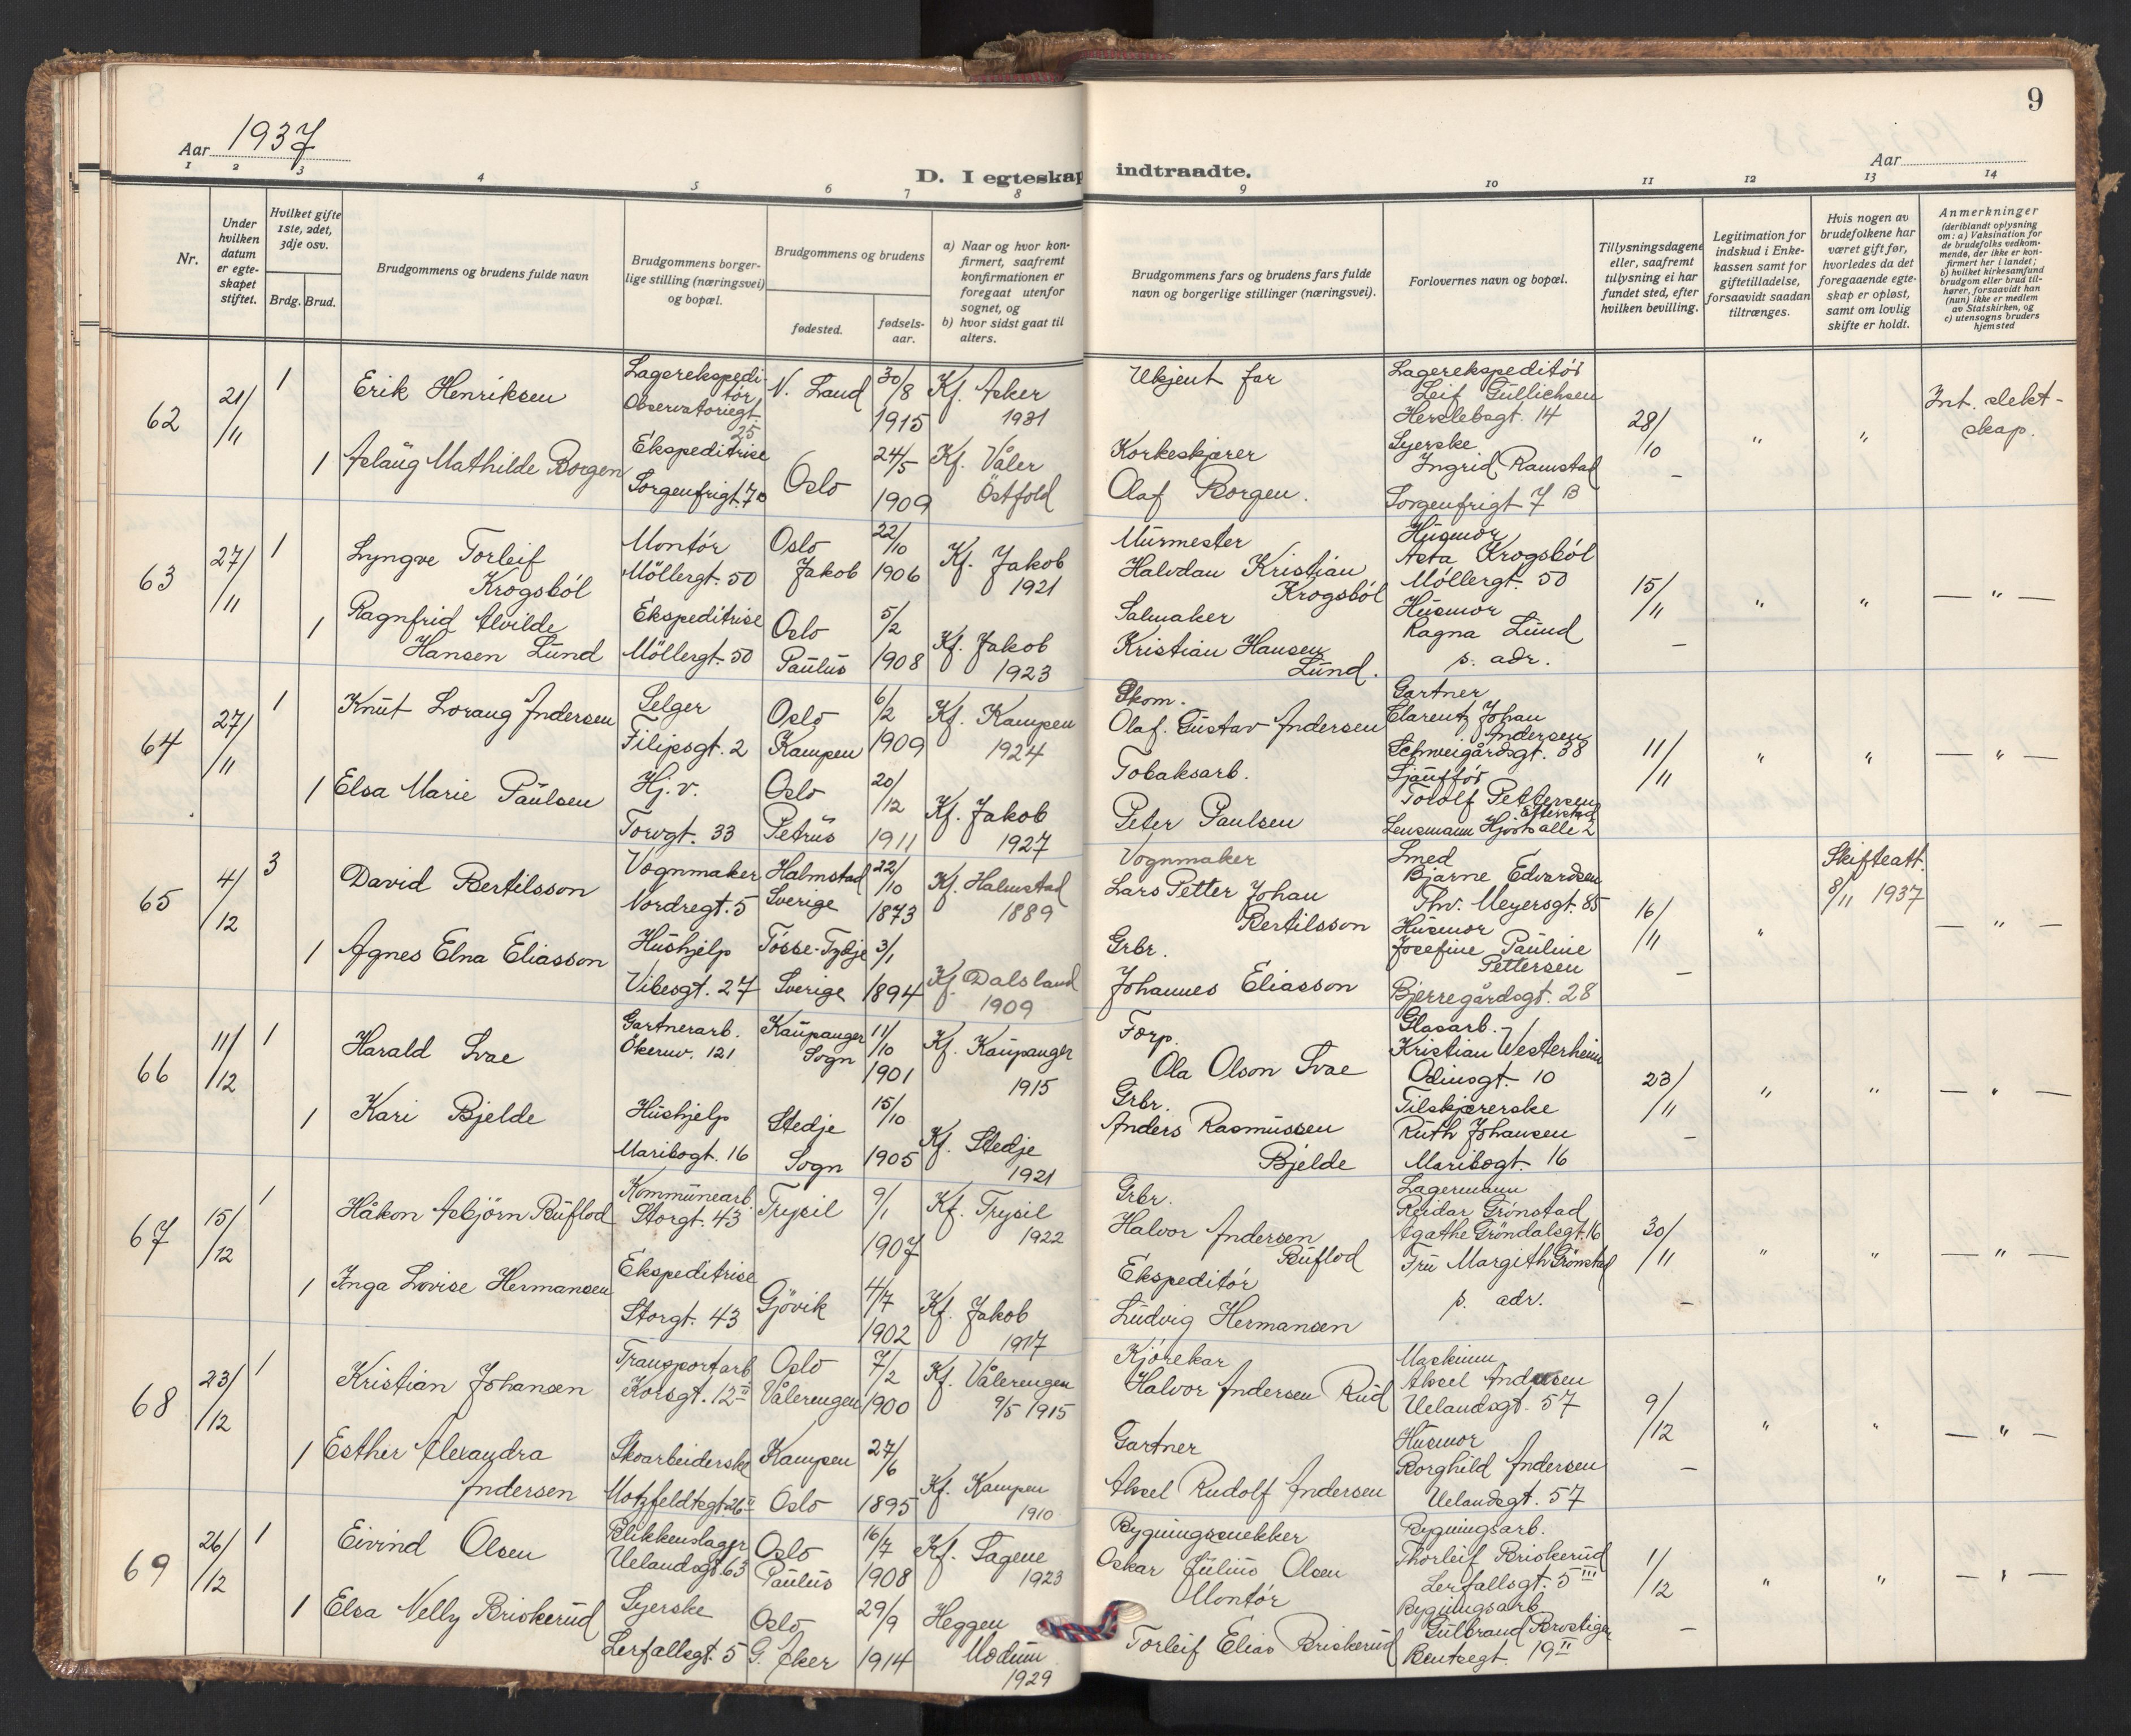 Aar 1937
D. I egteskap indtraadte.
9
Aar
1 2 3 4 5 6 7 8 9 10 11 12 13 14
Nr.
Under hvilken datum er egteskapet stiftet.
Hvilket gifte 1ste, 2det, 3dje osv.
Brdg. Brud.
Brudgommens og brudens fulde navn
Brudgommens borgerlige stilling (næringsvei) og bopæl.
Brudgommens og brudens
fødested.
fødselsaar.
a) Naar og hvor konfirmert, saafremt konfirmationen er foregaat utenfor sognet, og
b) hvor sidst gaat til alters.
Brudgommens fars og brudens fars fulde navn og borgerlige stillinger (næringsvei).
Forlovernes navn og bopæl.
Tillysningsdagene eller, saafremt tillysning ei har fundet sted, efter hvilken bevilling.
Legitimation for indskud i Enkekassen samt for giftetilladelse, forsaavidt saadan tiltrænges.
Hvis nogen av brudefolkene har været gift før, hvorledes da det foregaaende egteskap er opløst, samt om lovlig skifte er holdt.
Anmerkninger
(deriblandt oplysning om: a) Vaksination for de brudefolks vedkommende, der ikke er konfirmert her i landet; b) hvilket kirkesamfund brudgom eller brud tilhører, forsaavidt han (hun) ikke er medlem av Statskirken, og c) utensogns bruders hjemsted
62 21/11 1 Erik Henriksen Lagerekspeditör Observatoriegt. 25 N. Land 30/8 1915 Kf. Asker 1931 Ukjent far Lagerekspeditör Leif Gullichsen Herslebsgt. 14 28/10 " " Int. slektskap.
1 Aslaug Mathilde Borgen Ekspeditrise Sorgenfrigt. 7 B Oslo 24/5 1909 Kf. Våler Östfold Korkeskjærer Olaf Borgen. Syerske Ingrid Ramstad Sorgenfrigt 7 B –
63 27/11 1 Lyngve Torleif Krogsböl Montör Möllergt. 50 Oslo Jakob 22/10 1906 Kf. Jakob 1921 Murmester Halvdan Kristian Krogsböl Husmor Asta Krogsböl Möllergt. 50 15/11 " " — " —
1 Ragnfrid Alvilde Hansen Lund Ekspeditrise Möllergt. 50 Oslo Paulus 5/2 1908 Kf. Jakob 1923 Salmaker Kristian Hansen Lund. Husmor Ragna Lund s. adr. –
64 27/11 1 Knut Lorang Andersen Selger Filipsgt. 2 Oslo Kampen 6/2 1909 Kf. Kampen 1924 Skom. Olaf Gustav Andersen Gartner Clarentz Johan Andersen Schweigårdsgt. 38 11/11 " " — " —
1 Elsa Marie Paulsen Hj. v. Torvgt. 33 Oslo Petrus 20/12 1911 Kf. Jakob 1927 Tobaksarb. Peter Paulsen Sjaufför Tololf Pettersen Etterstad Lensmann Hjorts alle 2
65 4/12 3 David Bertilsson Vognmaker Nordregt. 5 Halmstad Sverige 22/10 1873 Kf. Halmstad 1889 Vognmaker Lars Petter Johan Bertilsson Smed Bjarne Edvardsen Thv. Meyersgt. 85 16/11 " Skifteatt. 8/11 1937 — " —
1 Agnes Elna Eliasson Hushjelp Vibesgt. 27 Tösse-Tydje Sverige 3/1 1894 Kf. Dalsland 1909 Grbr. Johannes Eliasson Husmor Josefine Pauline Pettersen Bjerregårdsgt. 28 –
66 11/12 1 Harald Svae Gartnerarb. Ökernv. 121 Kaupanger Sogn 11/10 1901 Kf. Kaupanger 1915 Forp. Ola Olson Svae Glasarb. Kristian Westerheim Odinsgt. 10 23/11 " " — " —
1 Kari Bjelde Hushjelp Maribogt. 16 Stedje Sogn 15/10 1905 Kf. Stedje 1921 Grbr. Anders Rasmussen Bjelde Tilskjærerske Ruth Johansen Maribogt. 16 –
67 15/12 1 Håkon Asbjörn Buflod Kommunearb. Storgt. 43 Trysil 9/1 1907 Kf. Trysil 1922 Grbr. Halvor Andersen Buflod Lagermann Reidar Grönstad Agathe Gröndalsgt. 16 30/11 " " — " —
1 Inga Lovise Hermansen Ekspeditrise Storgt. 43 Gjövik 4/7 1902 Kf. Jakob 1917 Ekspeditör Ludvig Hermansen Fru Margith Grönstad s. adr. –
68 23/12 1 Kristian Johansen Transportarb Korsgt. 12 II Oslo Vålerengen 7/2 1900 Kf. Vålerengen 9/5 1915 Kjörekar Halvor Andersen Rud Maskinm Aksel Andersen Uelandsgt. 57 9/12 " " — " —
1 Esther Alexandra Andersen Skoarbeiderske Motzfeldtsgt. 26 II Kampen Oslo 27/6 1895 Kf. Kampen 1910 Gartner Aksel Rudolf Andersen Husmor Borghild Andersen Uelandsgt. 57 –
69 26/12 1 Eivind Olsen Blikkenslager Uelandsgt 63 Oslo Paulus 16/7 1908 Kf. Sagene 1923 Bygningssnekker Oskar Julius Olsen Bygningsarb. Thorleif Briskerud Lerfallsgt. 5 III 1/12 " " — " —
1 Elsa Nelly Briskerud Syerske Lerfallsgt. 5 Oslo G. Aker 29/9 1914 Heggen Modum 1929 Montör Torleif Elias Briskerud Bygningsarb Gulbrand Brostigen Bentsegt. 19 II –